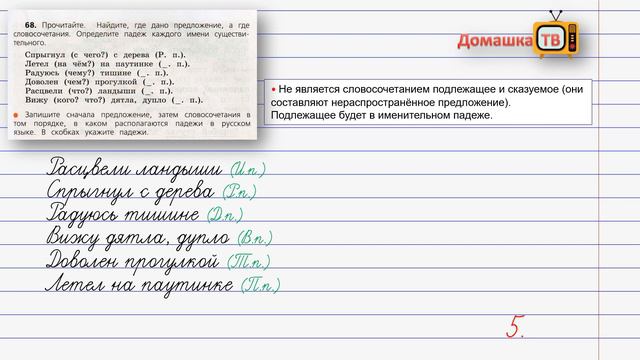 68. Прочитайте. Найдите, где дано предложение, а где
словосочетания. Определите падеж каждого имени существи-
тельного.
Спрыгнул (с чего?) с дерева (Р. п.).
Летел (на чём?) на паутинке (_. п.).
Радуюсь (чему?) тишине (_. п.).
Доволен (чем?) прогулкой (_. п.).
Расцвели (что?) ландыши (_. п.).
Вижу (кого? что?) дятла, дупло (_. п.).
● Запишите сначала предложение, затем словосочетания в
том порядке, в каком располагаются падежи в русском
языке. В скобках укажите падежи.
Домашка ТВ
• Не является словосочетанием подлежащее и сказуемое (они
составляют нераспространённое предложение).
Подлежащее будет в именительном падеже.
Расцвели ландыши (И.п.)
Спрыгнул с дерева (Р.п.)
Радуюсь тишине (Д.п.)
Вижу дятла, дупло (В.п.)
Доволен прогулкой (Т.п.)
Летел на паутинке (П.п.)
5.